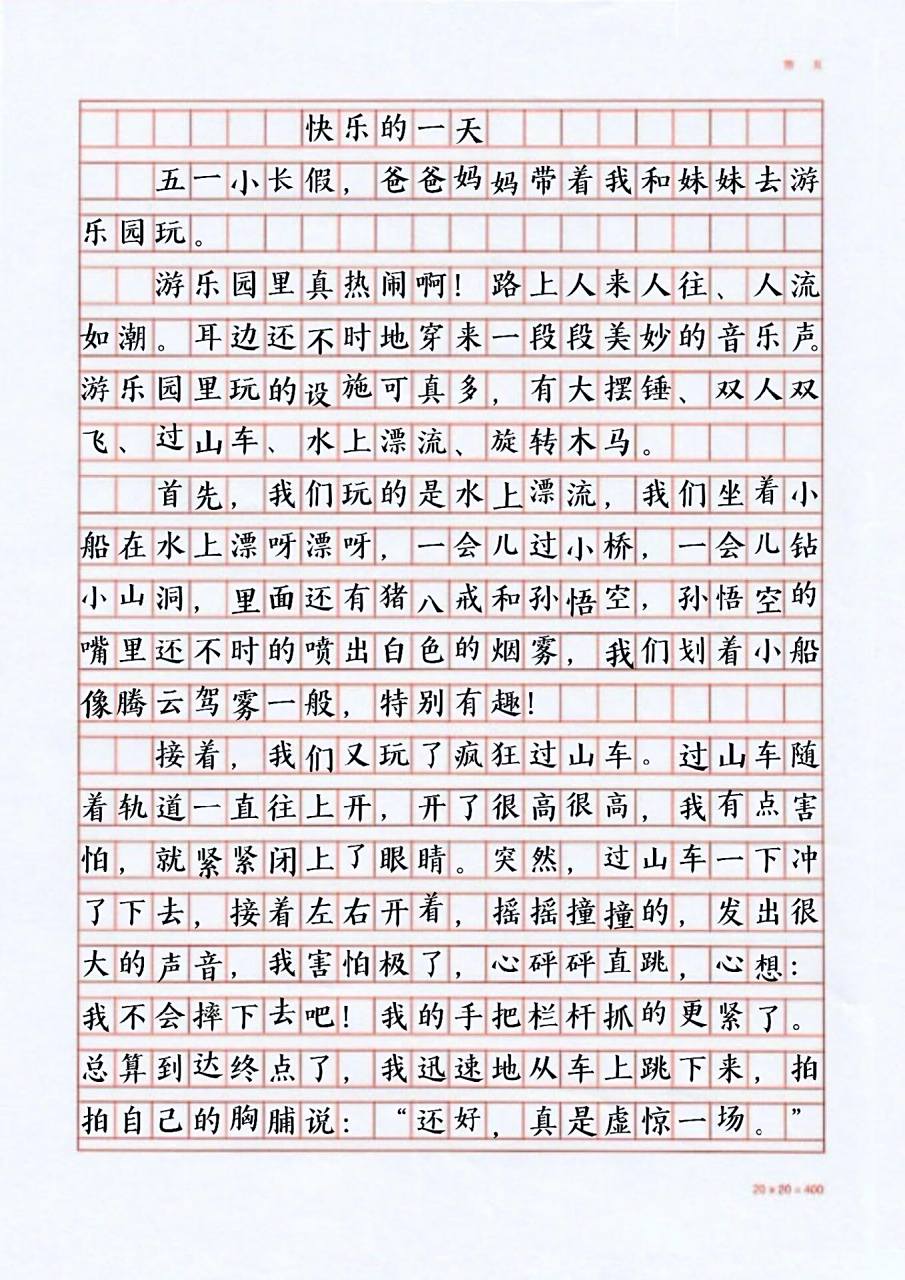 快乐的一天
五一小长假，爸爸妈妈带着我和妹妹去游
乐园玩。
游乐园里真热闹啊！路上人来人往、人流
如潮。耳边还不时地穿来一段段美妙的音乐声。
游乐园里玩的设施可真多，有大摆锤、双人双
飞、过山车、水上漂流、旋转木马。
首先，我们玩的是水上漂流，我们坐着小
船在水上漂呀漂呀，一会儿过小桥，一会儿钻
小山洞，里面还有猪八戒和孙悟空，孙悟空的
嘴里还不时的喷出白色的烟雾，我们划着小船
像腾云驾雾一般，特别有趣！
接着，我们又玩了疯狂过山车。过山车随
着轨道一直往上开，开了很高很高，我有点害
怕，就紧紧闭上了眼睛。突然，过山车一下冲
了下去，接着左右开着，摇摇撞撞的，发出很
大的声音，我害怕极了，心砰砰直跳，心想：
我不会摔下去吧！我的手把栏杆抓的更紧了。
总算到达终点了，我迅速地从车上跳下来，拍
拍自己的胸脯说：“还好，真是虚惊一场。”
20×20=400